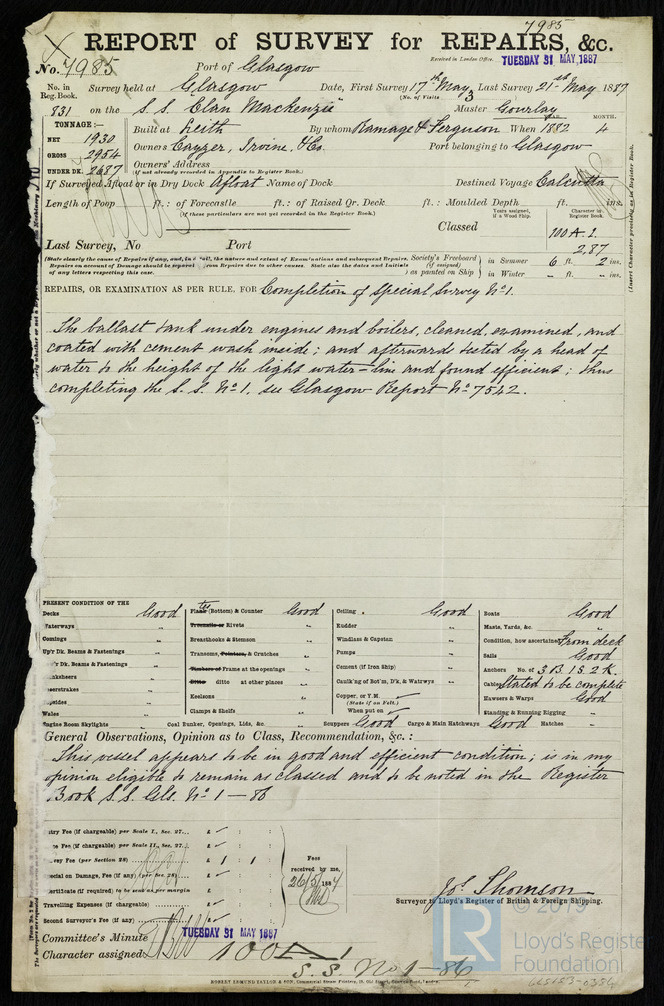 7985
REPORT of SURVEY for REPAIRS, &c.
Received in London Office. TUESDAY 31 MAY, 1887
No. 7985 Port of Glasgow
No. in Reg. Book. Survey held at Glasgow Date, First Survey 17th May Last Survey 21st May 1887
(No. of Visits 3
831 on the S. S. Clan Mackenzie" Master Gourlay
TONNAGE:— YEAR. MONTH.
NET 1930 Built at Leith By whom Ramage & Ferguson When 1882 4
GROSS 2954 Owners Cayzer, Irvine, & Co. Port belonging to Glasgow
UNDER DK. 2687 Owners' Address
(if not already recorded in Appendix to Register Book.)
If Surveyed Afloat or in Dry Dock Afloat Name of Dock Destined Voyage Calcutta
Length of Poop ft.: of Forecastle ft.: of Raised Qr. Deck ft.: Moulded Depth ft. ins.
(If these particulars are not yet recorded in the Register Book.)
Years assigned, if a Wood Ship. Character in Register Book.
Classed 100 A.1.
2,87
Last Survey, No Port
(State clearly the cause of Repairs if any, and, in detail, the nature and extent of Examinations and subsequent Repairs.
Repairs on account of Damage should be reported from Repairs due to other causes. State also the dates and Initials
of any letters respecting this case.
Society's Freeboard (if assigned) as painted on Ship
in Summer 6 ft. 2 ins.
in Winter " ft. " ins.
(Insert Character precisely as in Register Book.)
REPAIRS, OR EXAMINATION AS PER RULE, FOR Completion of Special Survey No 1.
The ballast tank under engines and boilers, cleaned, examined, and
coated with cement wash inside; and afterwards tested by a head of
water to the height of the light water-line and found efficient; thus
completing the S. S. No 1. see Glasgow Report No 7542.
PRESENT CONDITION OF THE
Decks Good
Waterways "
Comings "
Up'r Dk. Beams & Fastenings "
'r Dk. Beams & Fastenings "
nksheers "
eerstrakes "
psides "
Wales "
Engine Room Skylights "
Plating (Bottom) & Counter Good
Treenails or Rivets "
Breasthooks & Stemson "
Transoms, Pointers, & Crutches "
Timbers of Frame at the openings "
Ditto ditto at other places "
Keelsons "
Clamps & Shelfs "
Coal Bunker, Openings, Lids, &c. "
Ceiling Good
Rudder "
Windlass & Capstan "
Pumps "
Cement (if Iron Ship) "
Caulk'ng of Bot'm, D'k, & Watrwys "
Copper, or Y.M.
(State if on Felt.)
When put on
Scuppers Good Cargo & Main Hatchways Good Hatches "
Boats Good
Masts, Yards, &c. "
Condition, how ascertained From deck
Sails Good
Anchors No. of 3 B. 1 S. 2 K.
Cables Stated to be complete
Hawsers & Warps Good
Standing & Running Rigging "
General Observations, Opinion as to Class, Recommendation, &c.:
This vessel appears to be in good and efficient condition; is in my
opinion eligible to remain as classed and to be noted in the Register
Book S. S. Gls. No 1 — 86
ntry Fee (if chargeable) per Scale I., Sec. 27... £ : :
ee Fee (if chargeable) per Scale II., Sec. 27... £ : :
vey Fee (per Section 28) £ 1 : 1 :
pecial on Damage, Fee (if any) (per Sec. 28) £ : :
ertificate (if required) to be sent as per margin
Travelling Expenses (if chargeable) £ : :
Second Surveyor's Fee (if any) £ : :
Fees received by me,
26/5/1887
Jos. Thomson
Surveyor to Lloyd's Register of British & Foreign Shipping.
Committee's Minute TUESDAY 31 MAY 1887
Character assigned 100 A 1
S. S. No 1-86
ROBERT EDMUND TAYLOR & SON,
© 2019
LR
Lloyd's Register
Foundation